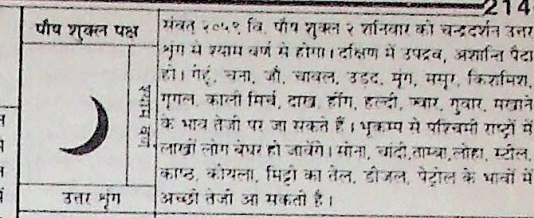 214
पौष शुक्ल पक्ष
श्याम वर्ण
उत्तर श्रृंग
संवत् २०५९ वि. पौष शुक्ल २ शनिवार को चन्द्रदर्शन उत्तर
श्रृंग में श्याम वर्ण से होगा। दक्षिण में उपद्रव, अशान्ति पैदा
हो। गेहूं, चना, जौ, चावल, उड़द, मूंग, मसूर, किशमिश,
गूगल, काली मिर्च, दाख, हींग, हल्दी, ज्वार, गुवार, मखाने
के भाव तेजी पर जा सकते हैं। भूकम्प से पश्चिमी राष्ट्रों में
लाखों लोग बेघर हो जावेंगे। सोना, चांदी, ताम्बा, लोहा, स्टील,
काष्ठ, कोयला, मिट्टी का तेल, डीजल, पेट्रोल के भावों में
अच्छी तेजी आ सकती है।